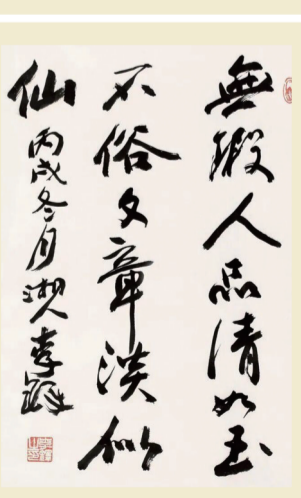 無瑕人品清如玉
不俗文章淡似
仙 丙戌冬月湘人李鐸